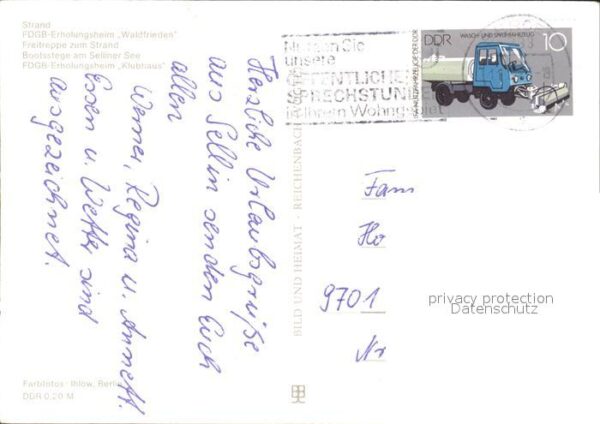 Strand
FDGB-Erholungsheim „Waldfrieden"
Freitreppe zum Strand
Bootsstege am Selliner See
FDGB-Erholungsheim „Klubhaus"
Herzliche Urlaubsgrüße
aus Sellin senden Euch
allen
Werner, Regina u. Annett.
Essen u. Wetter sind
ausgezeichnet.
Farbfotos: Ihlow, Berlin
DDR 0,20 M
BILD UND HEIMAT · REICHENBACH
Nutzen Sie
unsere
ÖFFENTLICHEN
SPRECHSTUNDEN
in Ihrem Wohngebiet
DDR
WASCH- UND SPRENGFAHRZEUG
10
IFA-NUTZFAHRZEUGE DER DDR
Fam
Ho
9701
privacy protection
Datenschutz